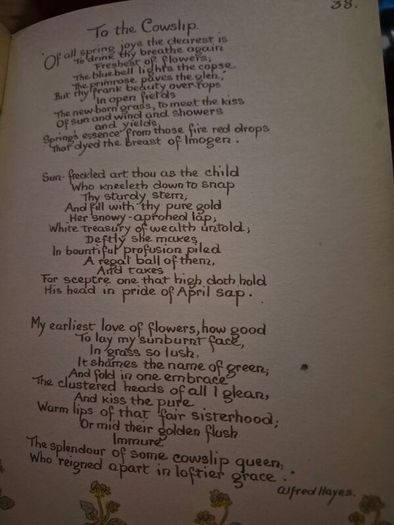 38.
To the Cowslip.
Of all spring joys the dearest is
To drink thy breathe again
Freshest of flowers,
The bluebell lights the copse
The primrose paves the glen,
But thy frank beauty overtops
In open fields
The newborn grass, to meet the kiss
Of sun and wind and showers
and yields,
Spring's essence from those fire red drops
That dyed the breast of Imogen.
Sun-freckled art thou as the child
Who kneeleth down to snap
Thy sturdy stem,
And fill with thy pure gold
Her snowy-aproned lap,
White treasury of wealth untold,
Deftly she makes
In bountiful profusion piled
A regal ball of them,
And takes
For sceptre one that high doth hold
His head in pride of April sap.
My earliest love of flowers, how good
To lay my sunburnt face,
In grass so lush,
It shames the name of green;
And fold in one embrace
The clustered heads of all I glean,
And kiss the pure
Warm lips of that fair sisterhood;
Or mid their golden flush
Immure
The splendour of some cowslip queen,
Who reigned apart in loftier grace.
Alfred Hayes.